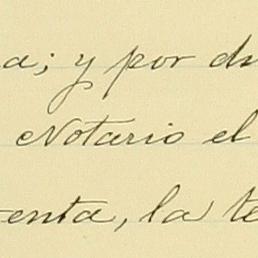 a; y por du
Notario el
enta, la te